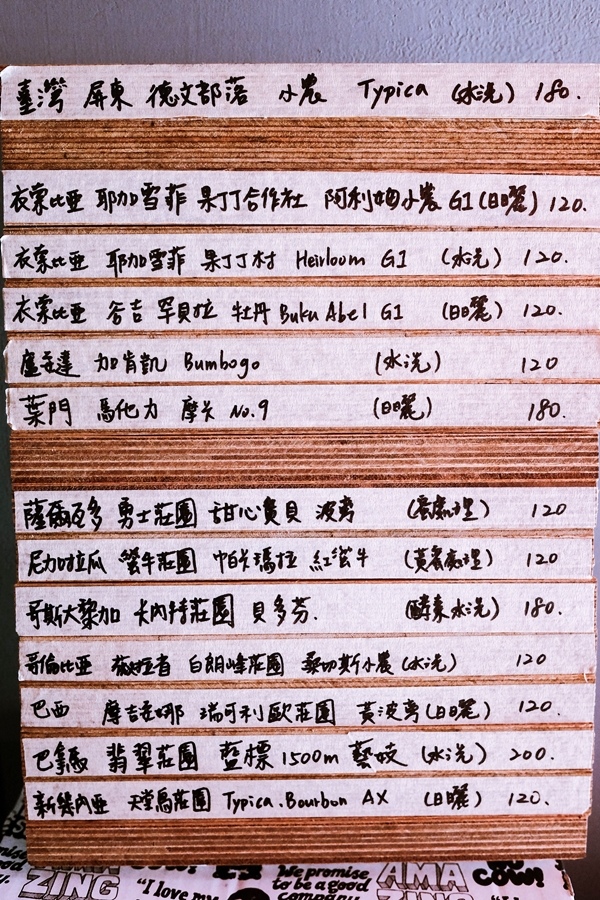 臺灣 屏東 德文部落 小農 Typica (水洗) 180.
衣索比亞 耶加雪菲 果丁丁合作社 阿利姆小農 G1 (日曬) 120.
衣索比亞 耶加雪菲 果丁丁村 Heirloom G1 (水洗) 120.
衣索比亞 谷吉 罕貝拉 牡丹 Buku Abel G1 (日曬) 120.
盧安達 加肯凱 Bumbogo (水洗) 120
葉門 馬他力 摩卡 No.9 (日曬) 180.
薩爾瓦多 勇士莊園 甜心寶貝 波旁 (蜜處理) 120
尼加拉瓜 螢牛莊園 帕卡瑪拉 紅蜜牛 (黃蜜處理) 120
哥斯大黎加 卡內特莊園 貝多芬. (酵素水洗) 180.
哥倫比亞 薇拉省 白朗峰莊園 桑切斯小農 (水洗) 120
巴西 摩吉安娜 瑞可利歐莊園 黃波旁 (日曬) 120.
巴拿馬 翡翠莊園 藍標 1500m 藝妓 (水洗) 200.
新幾內亞 天堂鳥莊園 Typica.Bourbon AX (日曬) 120.
AMA
ZING
"I love my
We promise
to be a good
company.
AMA
ZING
COW!